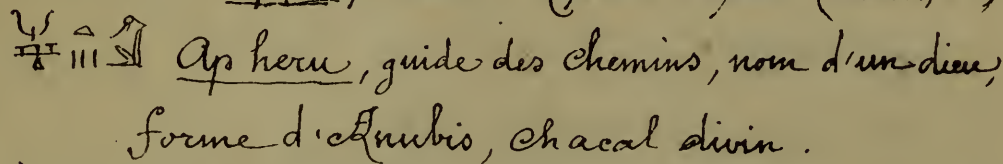 Ap heru, guide des chemins, nom d'un dieu,
forme d'Anubis, chacal divin.